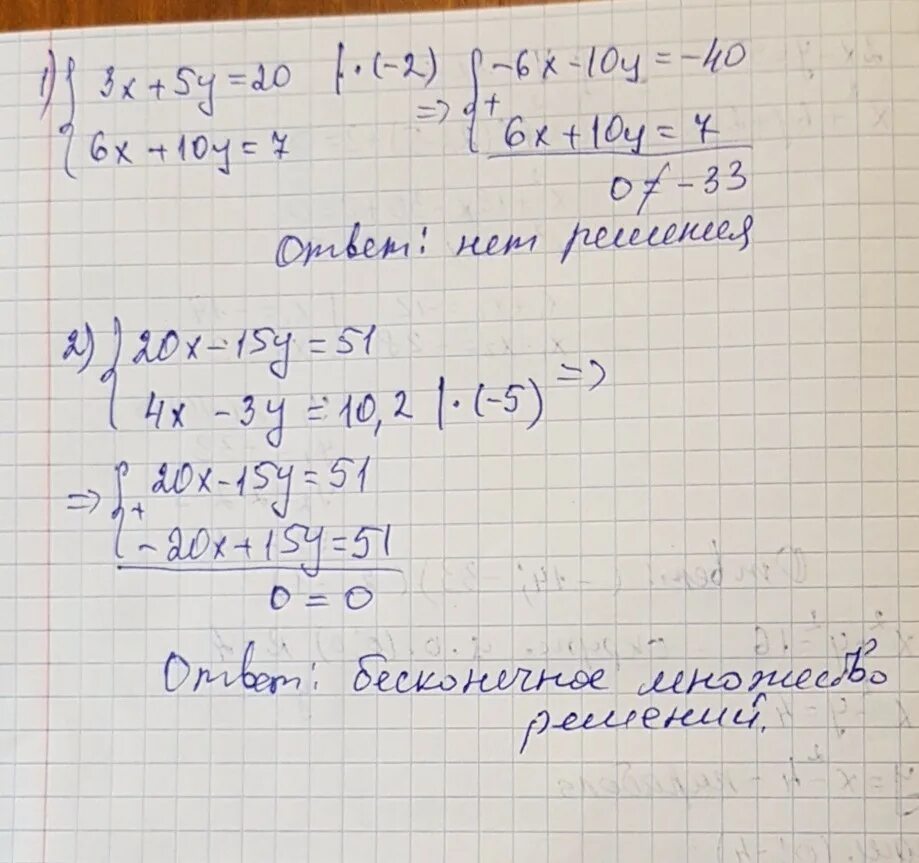 1) { 3x + 5y = 20 | · (-2) => { -6x - 10y = -40
6x + 10y = 7 + 6x + 10y = 7
0 ≠ -33
Ответ: нет решения
2) { 20x - 15y = 51
4x - 3y = 10,2 | · (-5) =>
=> { 20x - 15y = 51
+ -20x + 15y = 51
0 = 0
Ответ: бесконечное множество
решений.